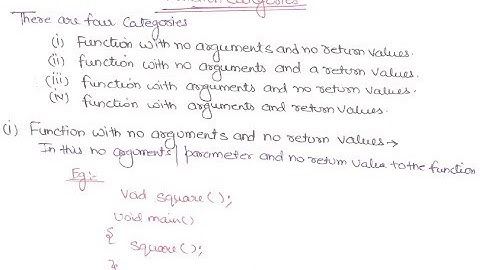 Function Categories
There are four Categories
(i) Function with no arguments and no return values.
(ii) function with no arguments and a return values.
(iii) function with arguments and no return values.
(iv) function with arguments and return values.
(i) Function with no arguments and no return values →
In this no arguments / parameter and no return value to the function
Eg:-
Void square();
Void main()
{
square();
}